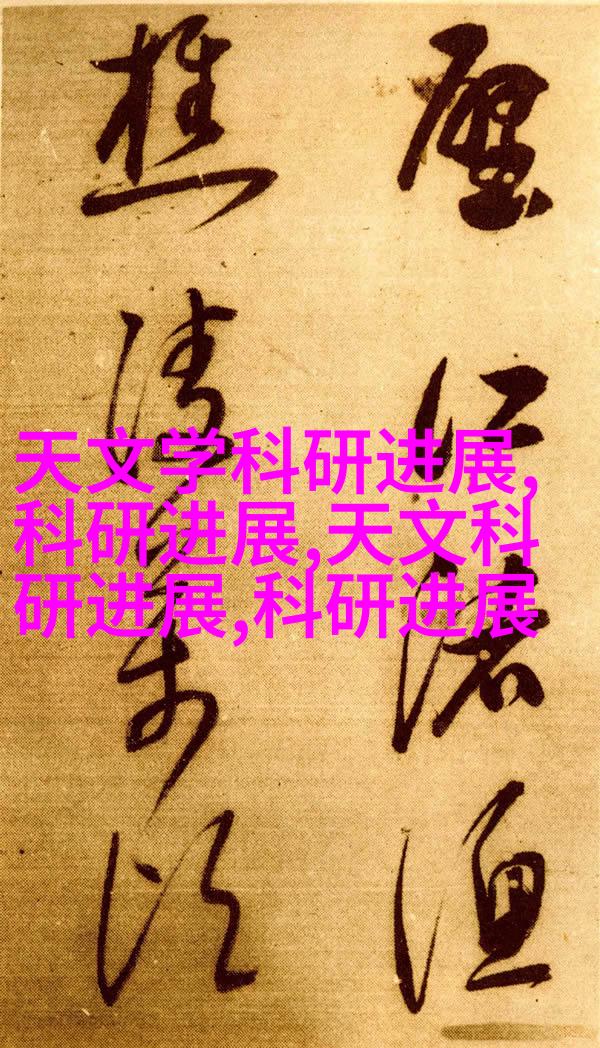 江渚漁
樵
天文学科研进展,
科研进展,天文科
研进展,科研进展